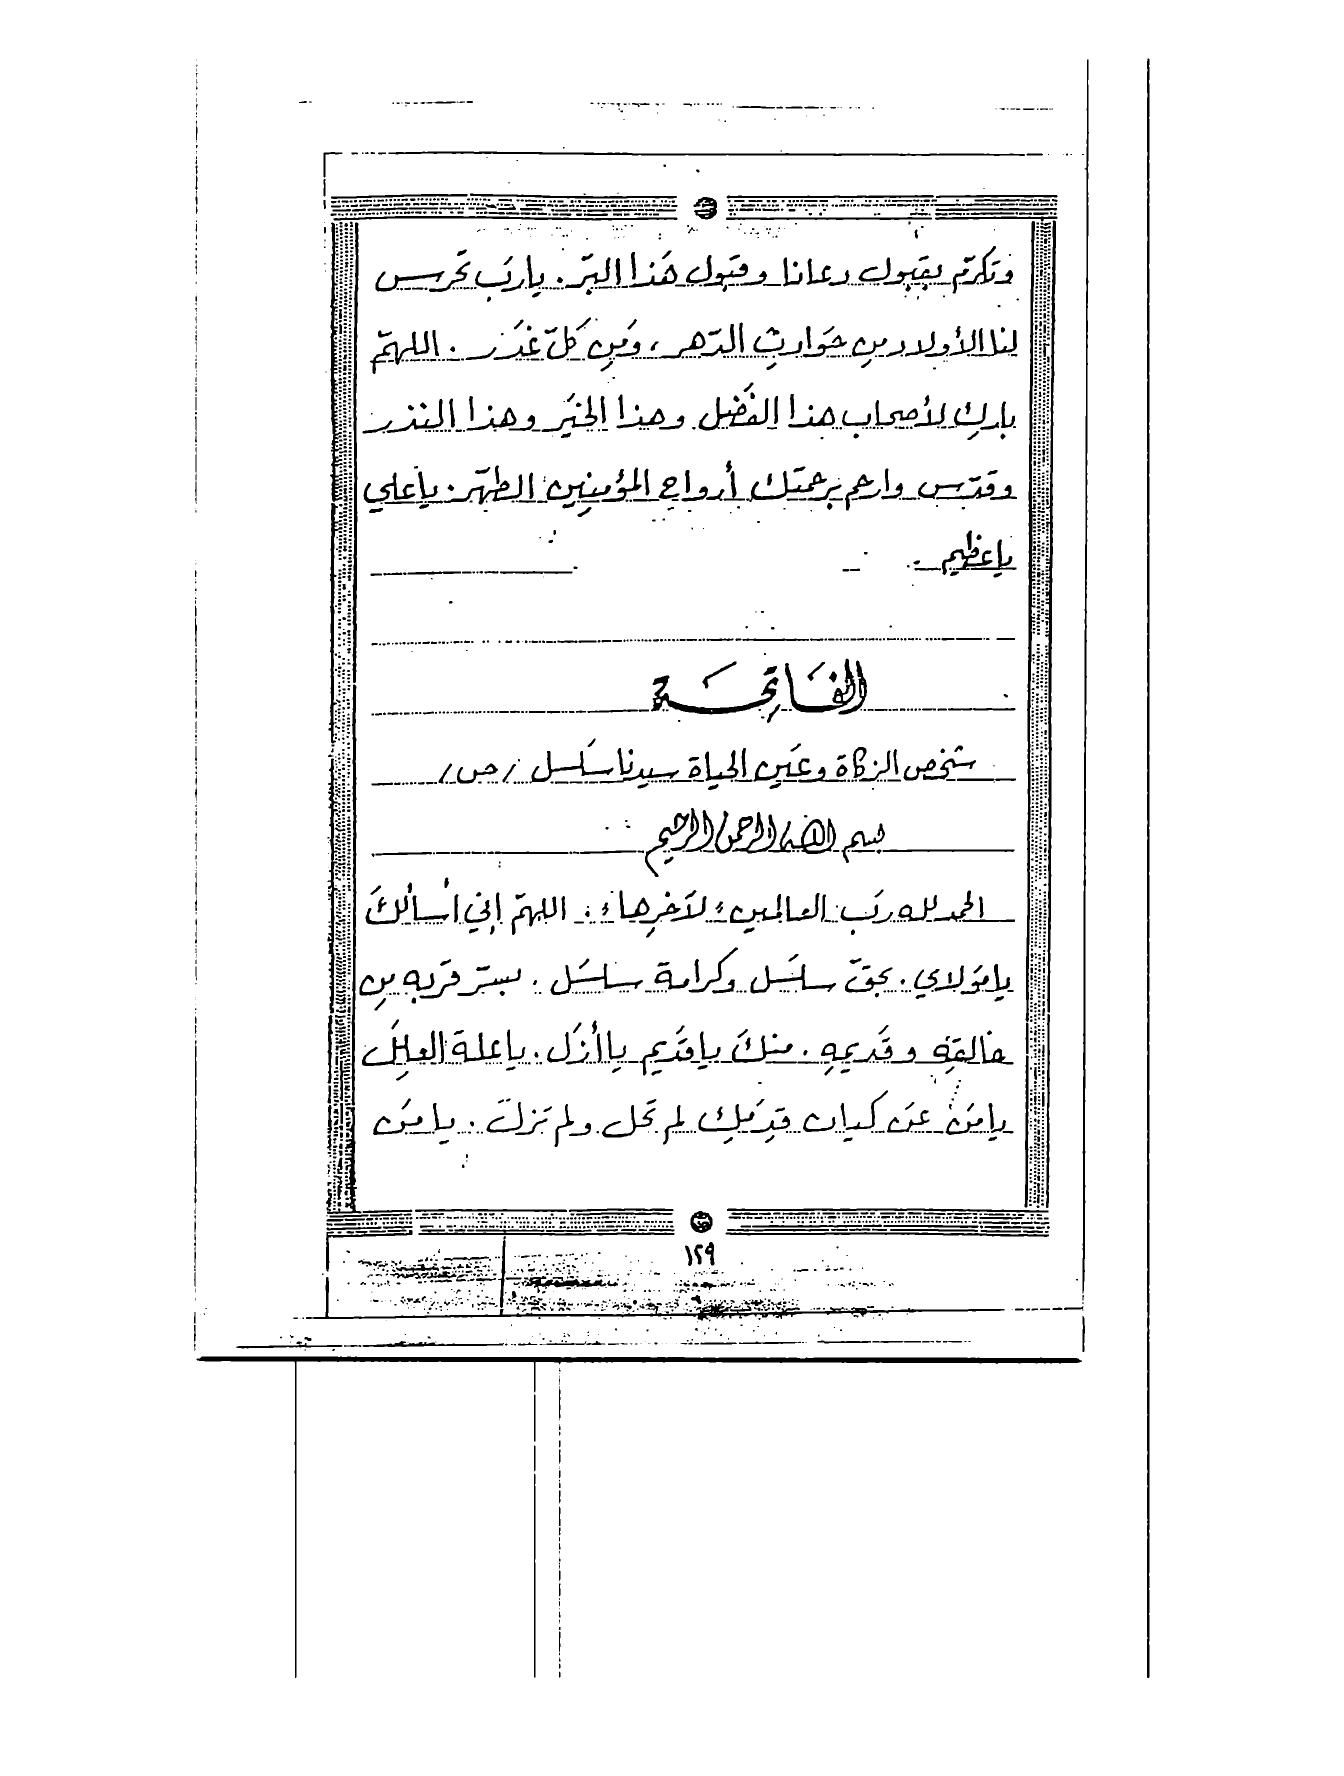 وتكرّم بقبول دعانا وقبول هَذا البرّ. يارَب تحَرس
لنا الأولاد مِن حَوادثِ الدّهر، وَمِن كَلّ غَدَر. اللهمّ
بارك لأصحاب هذا الفَضل وهذا الخيَر وهذا النذر
وقدّس وارحم برحمتك أرواح المؤمِنِين الطهّر. ياعَلي
ياعظيم.
الفَاتِحَة
شخص الزكاة وعَين الحياة سيدنا سَلسل /ص/
بسم الله الرحمن الرحيم
الحمد لله رَب العالمين؛ لآخرِها؛ اللهمّ إني أسألكَ
يامَولاي. بحقّ سلسَل وكرامة سلسَل. بستر قرَبه مِن
خالقهِ وقَديمهِ. منكَ ياقدَيم ياأزَل. ياعلة العِلَل
يامَن عَن كيان قِدَمِك لم تحَل ولم تزلَ. يا مَن
١٢٩